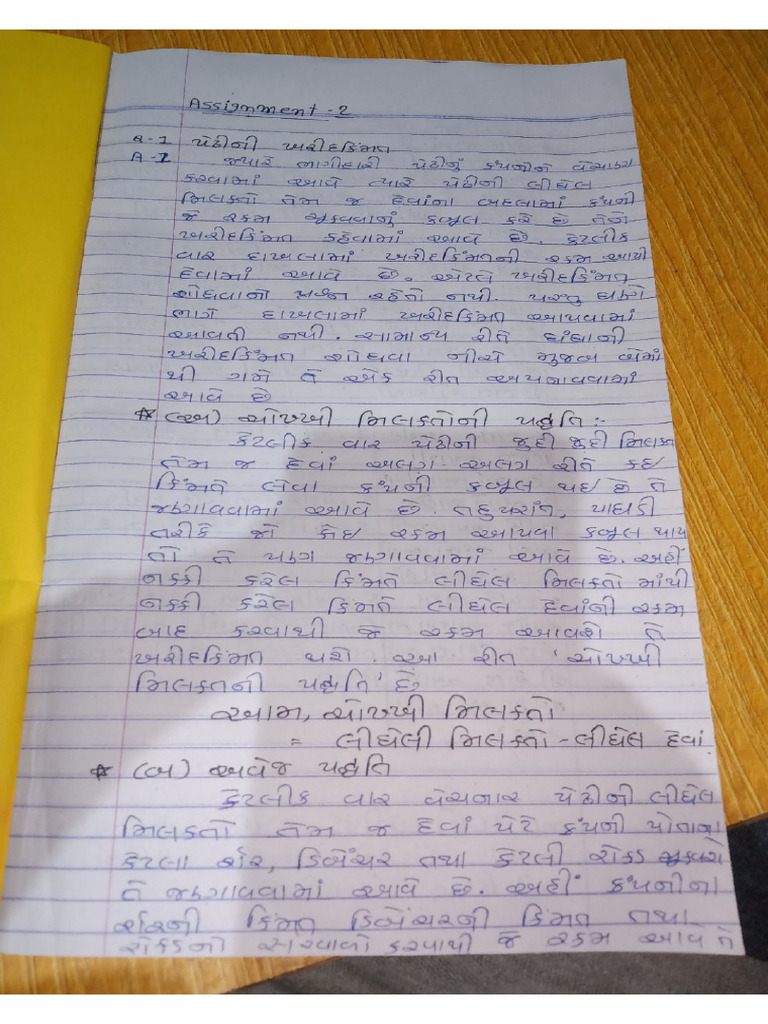 Assignment - 2
Q-1 પેઢીની ખરીદકિંમત
A-1 જ્યારે ભાગીદારી પેઢીનું કંપનીને વેચાણ
કરવામાં આવે ત્યારે પેઢીની લીધેલ
મિલકતો તેમ જ દેવાંના બદલામાં કંપની
જે રકમ ચૂકવવાનું કબુલ કરે છે તેને
ખરીદકિંમત કહેવામાં આવે છે. કેટલીક
વાર દાખલામાં ખરીદકિંમતની રકમ આપી
દેવામાં આવે છે. એટલે ખરીદકિંમત
શોધવાનો પ્રશ્ન રહેતો નથી. પરંતુ ઘણે
ભાગે દાખલામાં ખરીદકિંમત આપવામાં
આવતી નથી. સામાન્ય રીતે ધંધાની
ખરીદકિંમત શોધવા નીચે મુજબ બેમાં
થી ગમે તે એક રીત અપનાવવામાં
આવે છે
* (અ) ચોખ્ખી મિલકતોની પદ્ધતિ :-
કેટલીક વાર પેઢીની જુદી જુદી મિલકત
તેમ જ દેવાં અલગ-અલગ રીતે કઇ
કિંમતે લેવા કંપની કબુલ થઇ છે તે
જણાવવામાં આવે છે. તદુપરાંત, પાઘડી
તરીકે જો કોઇ રકમ આપવા કબુલ થાય
તો તે પણ જણાવવામાં આવે છે. અહીં
નક્કી કરેલ કિંમતે લીધેલ મિલકતો માંથી
નક્કી કરેલ કિંમતે લીધેલ દેવાંની રકમ
બાદ કરવાથી જે રકમ આવશે તે
ખરીદકિંમત થશે. આ રીત 'ચોખ્ખી
મિલકતની પદ્ધતિ' છે.
આમ, ચોખ્ખી મિલકતો
= લીધેલી મિલકતો - લીધેલ દેવાં
* (બ) અવેજ પદ્ધતિ
કેટલીક વાર વેચનાર પેઢીની લીધેલ
મિલકતો તેમ જ દેવાં પેટે કંપની પોતાના
કેટલા શેર, ડિબેંચર તથા કેટલી રોકડ ચૂકવશે
તે જણાવવામાં આવે છે. અહીં કંપનીના
શેરની કિંમત ડિબેંચરની કિંમત તથા
રોકડનો સરવાળો કરવાથી જે રકમ આવે તે